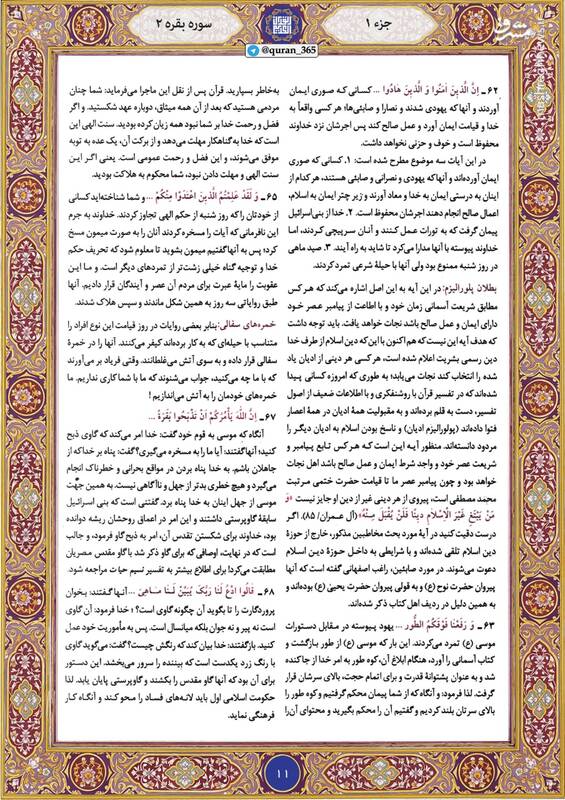 جزء ۱
سوره بقره ۲
@quran_365
مشرق
۶۲ ـ اِنَّ الَّذينَ آمَنُوا وَ الَّذينَ هادُوا ... کسانی که صوری ایمان
آوردند و آنها که یهودی شدند و نصارا و صابئی‌ها؛ هر کسی واقعاً به
خدا و قیامت ایمان آورد و عمل صالح کند پس اجرشان نزد خداوند
محفوظ است و خوف و حزنی نخواهد داشت.
در این آیات سه موضوع مطرح شده است: ۱. کسانی که صوری
ایمان آورده‌اند و آنها که یهودی و نصرانی و صابئی هستند، هر کدام از
اینان به درستی ایمان به خدا و معاد آورند و زیر چتر ایمان به اسلام،
اعمال صالح انجام دهند اجرشان محفوظ است. ۲. خدا از بنی‌اسرائیل
پیمان گرفت که به تورات عمل کنند و آنان سرپیچی کردند، اما
خداوند پیوسته با آنها مدارا می‌کرد تا شاید به راه آیند. ۳. صید ماهی
در روز شنبه ممنوع بود ولی آنها با حیلهٔ شرعی تمرد کردند.
بطلان پلورالیزم: در این آیه به این اصل اشاره می‌کند که هر کس
مطابق شریعت آسمانی زمان خود و با اطاعت از پیامبر عصر خود
دارای ایمان و عمل صالح باشد نجات خواهد یافت. باید توجه داشت
که هدف آیه این نیست که هم اکنون با این که دین اسلام از طرف خدا
دین رسمی بشریت اعلام شده است، هر کسی هر دینی از ادیان یاد
شده را انتخاب کند نجات می‌یابد؛ به طوری که امروزه کسانی پیدا
شده‌اند که در تفسیر قرآن با روشنفکری و با اطلاعات ضعیف از اصول
تفسیر، دست به قلم برده‌اند و به مقبولیت همهٔ ادیان در همهٔ اعصار
فتوا داده‌اند (پولورالیزم ادیان) و ناسخ بودن اسلام به ادیان دیگر را
مردود دانسته‌اند. منظور آیه این است که هر کس تابع پیامبر و
شریعت عصر خود و واجد شرط ایمان و عمل صالح باشد اهل نجات
خواهد بود و چون پیامبر عصر ما تا قیامت حضرت ختمی مرتبت
محمد مصطفی است، پیروی از هر دینی غیر از دین او جایز نیست «وَ
مَنْ يَبْتَغِ غَيْرَ الْاِسْلامِ دينًا فَلَنْ يُقْبَلَ مِنْهُ»(آل عمران/ ۸۵). اگر
درست دقت کنید در آیهٔ مورد بحث مخاطبین مذکور، خارج از حوزهٔ
دین اسلام تلقی شده‌اند و با شرایطی به داخل حوزهٔ دین اسلام
دعوت می‌شوند. در مورد صابئین، راغب اصفهانی گفته است که آنها
پیروان حضرت نوح (ع) و به قولی پیروان حضرت یحییٰ (ع) بوده‌اند و
به همین دلیل در ردیف اهل کتاب ذکر شده‌اند.
۶۳ ـ وَ رَفَعْنا فَوْقَكُمُ الطُّورَ ... یهود پیوسته در مقابل دستورات
موسی (ع) تمرد می‌کردند. این بار که موسی (ع) از طور بازگشت و
کتاب آسمانی را آورد، هنگام ابلاغ آن، کوه طور به امر خدا از جا کنده
شد و به عنوان پشتوانهٔ قدرت و برای اتمام حجت، بالای سرشان قرار
گرفت. لذا فرمود: و آنگاه که از شما پیمان محکم گرفتیم و کوه طور را
بالای سرتان بلند کردیم و گفتیم آن را محکم بگیرید و محتوای آن را
به‌خاطر بسپارید. قرآن پس از نقل این ماجرا می‌فرماید: شما چنان
مردمی هستید که بعد از آن همه میثاق، دوباره عهد شکستید. و اگر
فضل و رحمت خدا بر شما نبود همه زیان کرده بودید. سنت الهی این
است که خدا به گناهکار مهلت می‌دهد و از برکت آن، یک عده به توبه
موفق می‌شوند، و این فضل و رحمت عمومی است. یعنی اگر این
سنت الهی و مهلت دادن نبود، شما محکوم به هلاکت بودید.
۶۵ ـ وَ لَقَدْ عَلِمْتُمُ الَّذينَ اعْتَدَوْا مِنْكُمْ ... و شما شناخته‌اید کسانی
از خودتان را که روز شنبه از حکم الهی تجاوز کردند. خداوند به جرم
این نافرمانی که آیات را مسخره کردند آنان را به صورت میمون مسخ
کرد؛ پس به آنها گفتیم میمون بشوید تا معلوم شود که تحریف حکم
خدا و توجیه گناه خیلی زشت‌تر از تمردهای دیگر است. و ما این
عقوبت را مایهٔ عبرت برای مردم آن عصر و آیندگان قرار دادیم. آنها
طبق روایاتی سه روز به همین شکل ماندند و سپس هلاک شدند.
خمره‌های سفالی: بنابر بعضی روایات در روز قیامت این نوع افراد را
متناسب با حیله‌ای که به کار برده‌اند کیفر می‌کنند. آنها را در خمرهٔ
سفالی قرار داده و به سوی آتش می‌غلطانند. وقتی فریاد بر می‌آورند
که با ما چه می‌کنید، جواب می‌شنوند که ما با شما کاری نداریم. ما
خمره‌های خودمان را به آتش می‌اندازیم !
۶۷ ـ اِنَّ اللّهَ يَأْمُرُكُمْ اَنْ تَذْبَحُوا بَقَرَةً ...
آنگاه که موسی به قوم خود گفت: خدا امر می‌کند که گاوی ذبح
کنید؛ آنها گفتند: آیا ما را به مسخره می‌گیری؟ گفت: پناه بر خدا که از
جاهلان باشم. به خدا پناه بردن در مواقع بحرانی و خطرناک انجام
می‌گیرد و هیچ خطری بدتر از جهل و ناآگاهی نیست. به همین جهت
موسی از جهل اینان به خدا پناه برد. گفتنی است که بنی اسرائیل
سابقهٔ گاوپرستی داشتند و این امر در اعماق روحشان ریشه دوانده
بود، خداوند برای شکستن تقدس آن، امر به ذبح گاو فرمود، و جالب
است که در نهایت، اوصافی که برای گاو ذکر شد با گاو مقدس مصریان
مطابقت می‌کرد! برای اطلاع بیشتر به تفسیر نسیم حیات مراجعه شود.
۶۸ ـ قالُوا ادْعُ لَنا رَبَّكَ يُبَيِّنْ لَنا ماهِيَ ... آنها گفتند: بخوان
پروردگارت را تا بگوید آن چگونه گاوی است؟ ؛ خدا فرمود: آن گاوی
است نه پیر و نه جوان بلکه میانسال است. پس به مأموریت خود عمل
کنید. باز گفتند: خدا بیان کند که رنگش چیست؟ گفت: می‌گوید گاوی
با رنگ زرد یکدست است که بیننده را سرور می‌بخشد. این دستور
برای آن بود که آنها گاو مقدس را بکشند و گاوپرستی پایان یابد. لذا
حکومت اسلامی اول باید لانه‌های فساد را محو کند و آنگاه کار
فرهنگی نماید.
۱۱